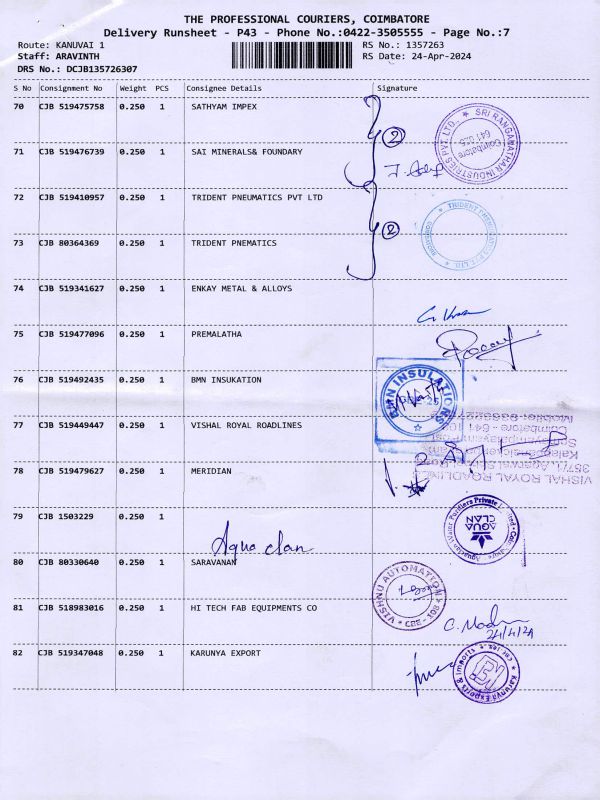 THE PROFESSIONAL COURIERS, COIMBATORE
Delivery Runsheet - P43 - Phone No.:0422-3505555 - Page No.:7
Route: KANUVAI 1 RS No.: 1357263
Staff: ARAVINTH RS Date: 24-Apr-2024
DRS No.: DCJB135726307
S No Consignment No Weight PCS Consignee Details Signature
70 CJB 519475758 0.250 1 SATHYAM IMPEX
2
SRI RANGANATHAR INDUSTRIES PVT. LTD.,
Coimbatore
641 025
71 CJB 519476739 0.250 1 SAI MINERALS& FOUNDARY
72 CJB 519410957 0.250 1 TRIDENT PNEUMATICS PVT LTD
2
73 CJB 80364369 0.250 1 TRIDENT PNEMATICS
74 CJB 519341627 0.250 1 ENKAY METAL & ALLOYS
75 CJB 519477096 0.250 1 PREMALATHA
76 CJB 519492435 0.250 1 BMN INSUKATION
BMN INSULATIONS
77 CJB 519449447 0.250 1 VISHAL ROYAL ROADLINES
VISHAL ROYAL ROADLINES
78 CJB 519479627 0.250 1 MERIDIAN
79 CJB 1503229 0.250 1
Aqua clan
AQUA
CLAN
80 CJB 80330640 0.250 1 SARAVANAN
VISHNU AUTOMATION
CBE - 108
81 CJB 518983016 0.250 1 HI TECH FAB EQUIPMENTS CO
24/4/24
82 CJB 519347048 0.250 1 KARUNYA EXPORT
Karunya Exports & Imports